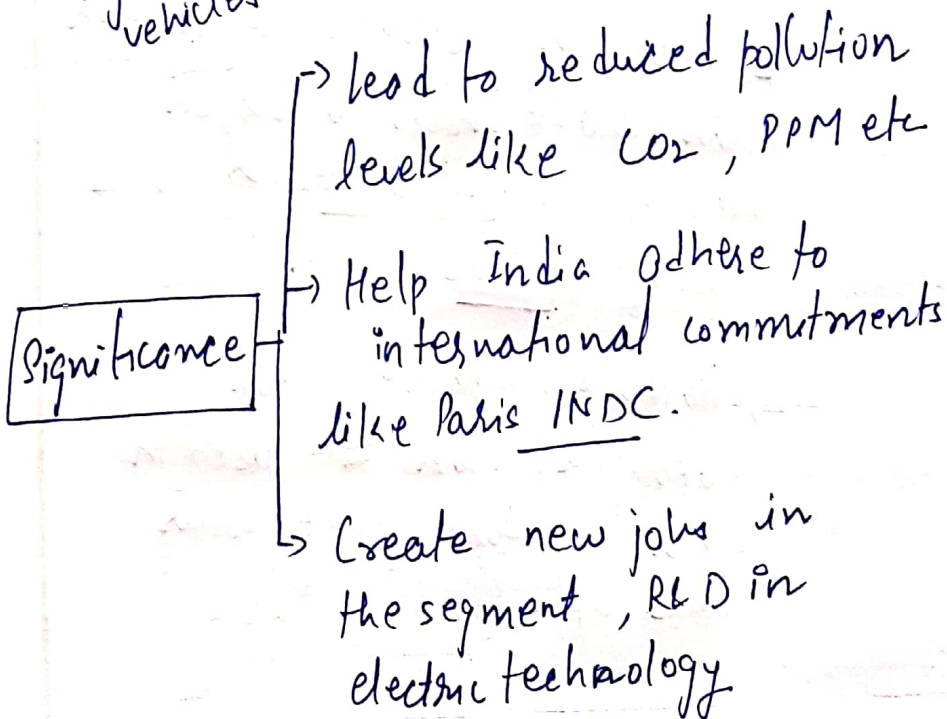 vehicles
→ lead to reduced pollution
levels like CO2, PPM etc
Significance
→ Help India adhere to
international commitments
like Paris INDC.
→ Create new jobs in
the segment, R&D in
electric technology